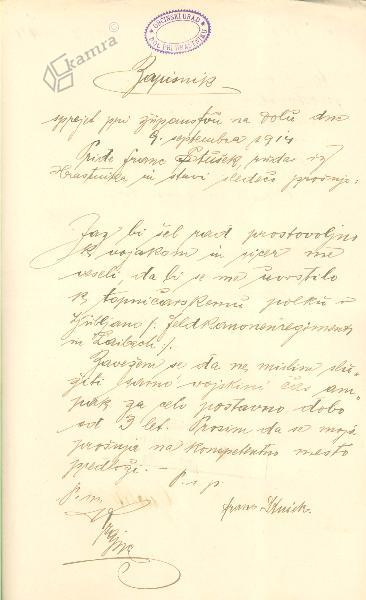 kamra
OBČINSKI URAD
DOL PRI HRASTNIKU
Zapisnik
sprejet pri županstvu na Dolu dne
9. septembra 1914
Pride Franc rudar iz
Hrastnika in stavi sledečo prošnjo:
Jaz bi šel rad prostovoljno
k vojakom in sicer me
veseli, da bi se me uvrstilo
k topničarskemu polku v
Ljubljano /: Feldkanonenregiment
in Laibach :/.
Zavežem se da ne mislim slu-
žiti samo vojskini čas am-
pak za celo postavno dobo
od 3 let. Prosim da se moja
prošnja na kompetentno mesto
predloži. —
P. s. p.
P. m.
Franc